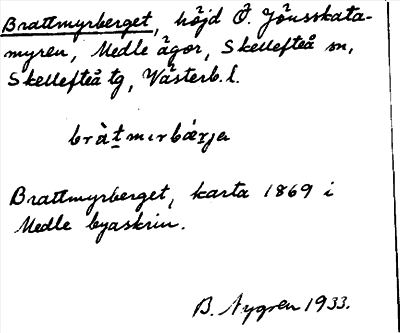 Brattmyrberget, höjd Ö. Jönsskata-
myren, Medle ägor, Skellefteå sn,
Skellefteå tg, Västerb. l.
bràt̲mırbær̲je
Brattmyrberget, karta 1869 i
Medle byaskrin.
B. Nygren 1933.